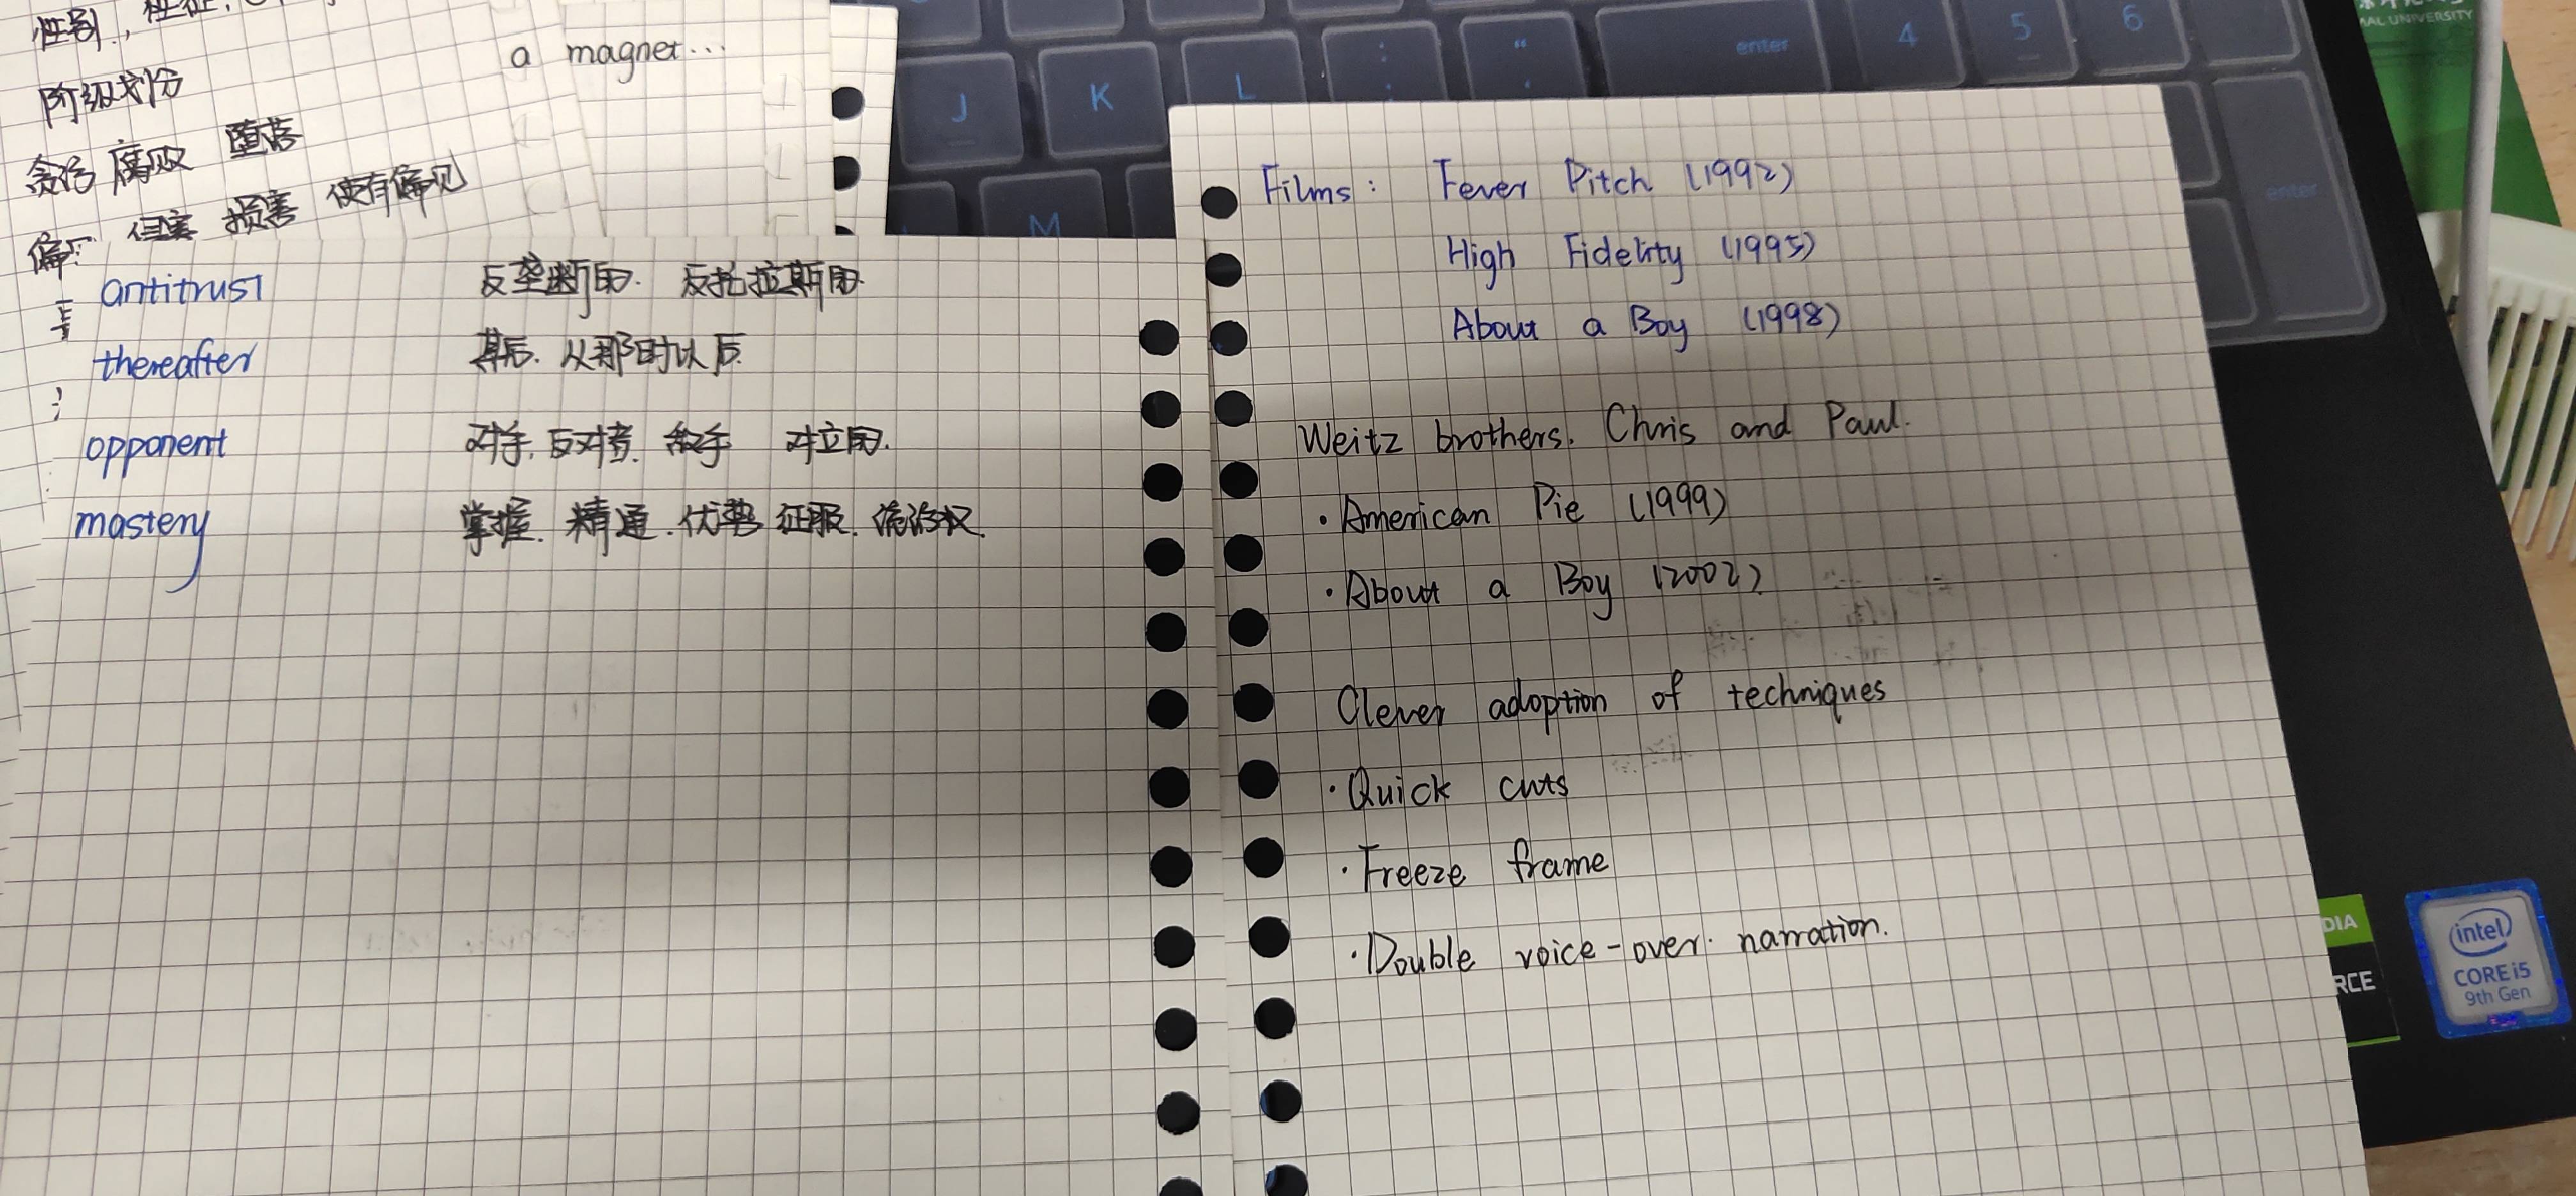 性别,
阶级划份
贪污 腐败 堕落
损害 使有偏见
a magnet...
antitrust 反垄断的. 反托拉斯的.
thereafter 其后. 从那时以后.
opponent 对手, 反对者. 敌手 对立的.
mastery 掌握. 精通. 优势 征服.
Films: Fever Pitch (1992)
High Fidelity (1995)
About a Boy (1998)
Weitz brothers. Chris and Paul.
·American Pie (1999)
·About a Boy (2002)
Clever adoption of techniques
·Quick cuts
·Freeze frame
·Double voice-over. narration.
J K L : ; " ' enter 4 5 6
M
enter
AL UNIVERSITY
DIA
RCE
intel
CORE i5
9th Gen